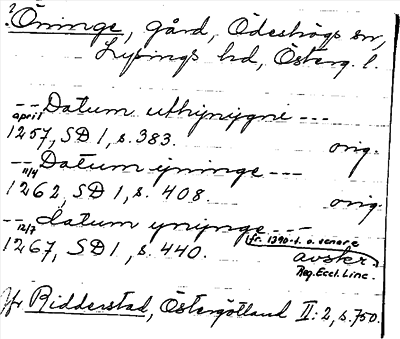 ? Öninge, gård, Ödeshögs sn,
Lysings hd, Österg. l.
-- Datum uthynygni ---
april
1257, SD 1, s. 383. orig.
-- Datum yninge ---
11/4
1262, SD 1, s. 408. orig.
-- datum yninge ---
12/7
1267, SD 1, s. 440. fr. 1290-t. o. senare
avskr.
Reg. Eccl. Linc.
Jfr Ridderstad, Östergötland II:2, s. 750.